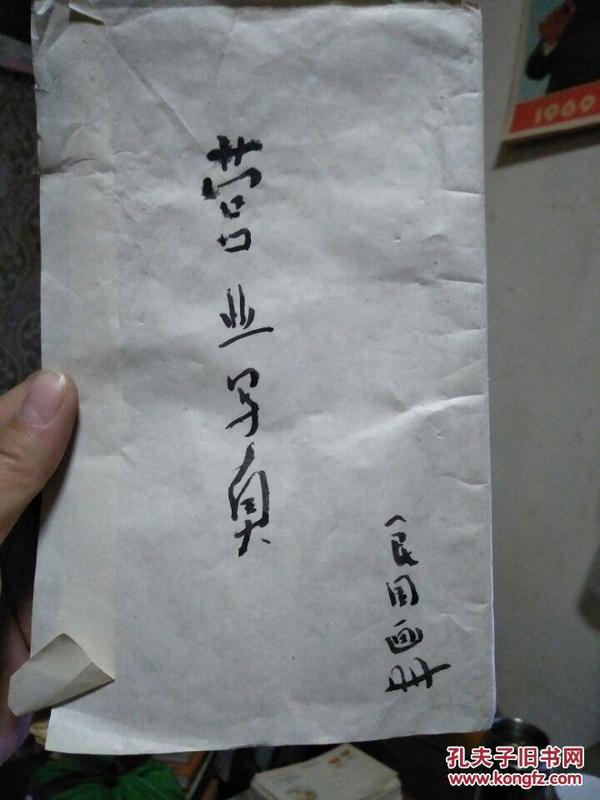 营业写真
（民国画册
1969
孔夫子旧书网
www.kongfz.com